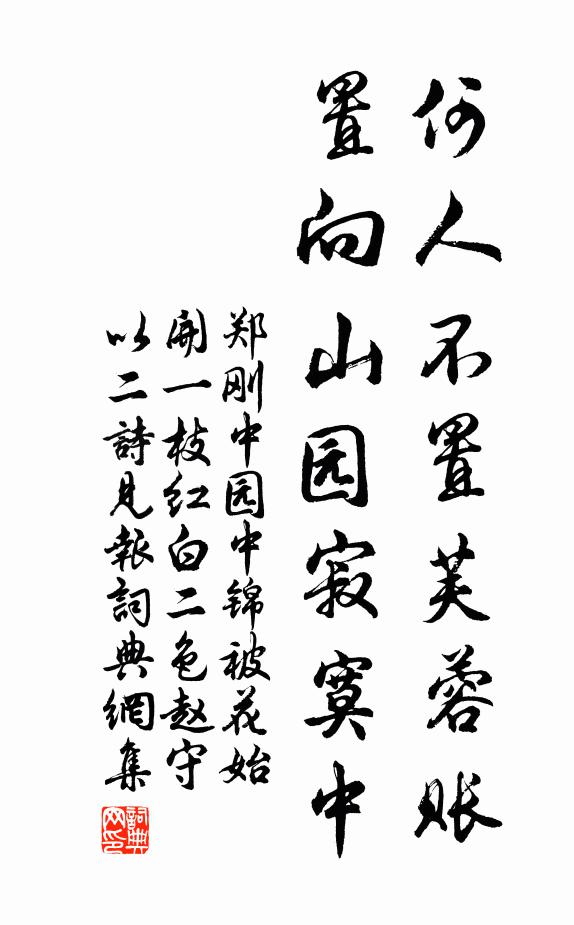 何人不置芙蓉账
置向山园寂寞中
郑刚中园中锦被花始
開一枝红白二色赵守
以二詩見報詞典網集
詞典网印